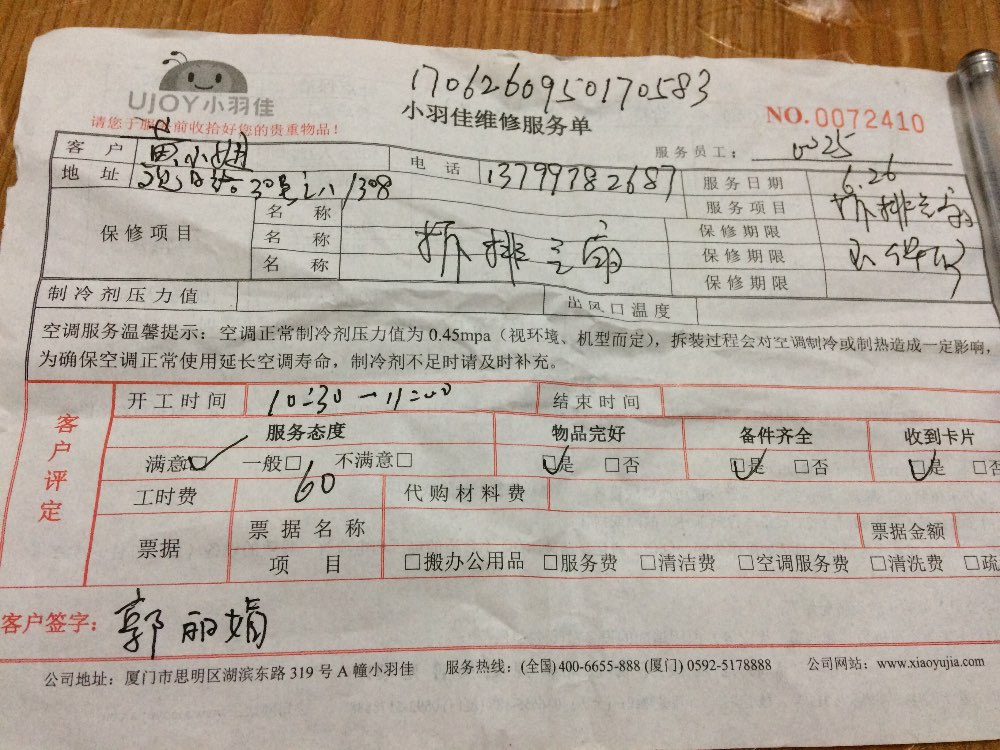 17062609501 70583
UJOY小羽佳
小羽佳维修服务单
NO.0072410
请您于服务前收拾好您的贵重物品！
服务员工： 0025
客户 黄小姐 电话 13799782687 服务日期 6.26
地址 30 1308 服务项目 拆排气扇
保修项目 名称 拆排气扇 保修期限
名称 保修期限 不保修
名称 保修期限
制冷剂压力值 出风口温度
空调服务温馨提示：空调正常制冷剂压力值为 0.45mpa（视环境、机型而定），拆装过程会对空调制冷或制热造成一定影响，
为确保空调正常使用延长空调寿命，制冷剂不足时请及时补充。
客户评定
开工时间 10:30—11:00 结束时间
服务态度 物品完好 备件齐全 收到卡片
满意☑ 一般□ 不满意□ ☑是 □否 ☑是 □否 ☑是 □否
工时费 60 代购材料费
票据 票据名称 票据金额
项目 □搬办公用品 □服务费 □清洁费 □空调服务费 □清洗费 □疏
客户签字：郭丽娟
公司地址：厦门市思明区湖滨东路 319 号 A 幢小羽佳 服务热线：(全国) 400-6655-888 (厦门) 0592-5178888 公司网站：www.xiaoyujia.com